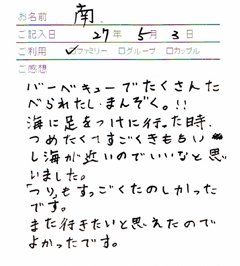 お名前 南.
ご記入日 27年 5月 3日
ご利用 ✓ファミリー □グループ □カップル
ご感想
バーベキューでたくさんた
べられたし、まんぞく。!!
海に足をつけに行った時、
つめたくてすっごくきもちい
し海が近いのでいいなと思
いました。
「つり」もすっごくたのしかった
です。
また行きたいと思えたので
よかったです。